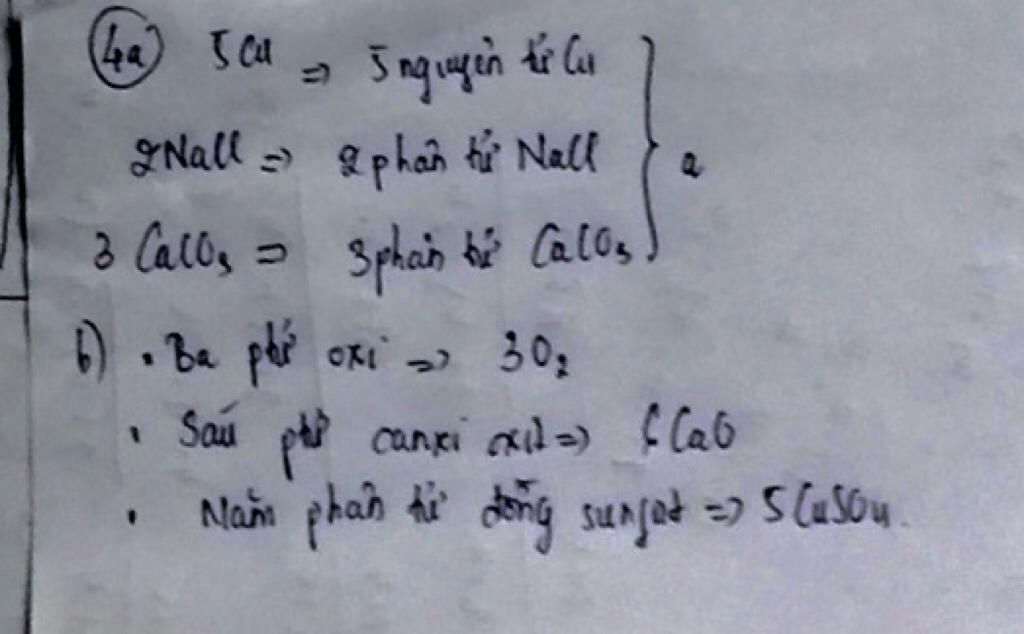 4a) 5 Cu => 5 nguyên tử Cu
2 NaCl => 2 phân tử NaCl } a
3 CaCO₃ => 3 phân tử CaCO₃
b) • Ba phtử oxi => 3O₂
• Sáu phtử canxi oxit => 6 CaO
• Năm phân tử đồng sunfat => 5 CuSO₄.